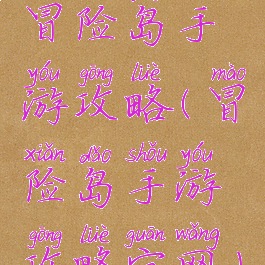 冒险岛手
yóu gōng lüè mào
游攻略(冒
xiǎn dǎo shǒu yóu
险岛手游
gōng lüè guān wǎng
攻略官网)